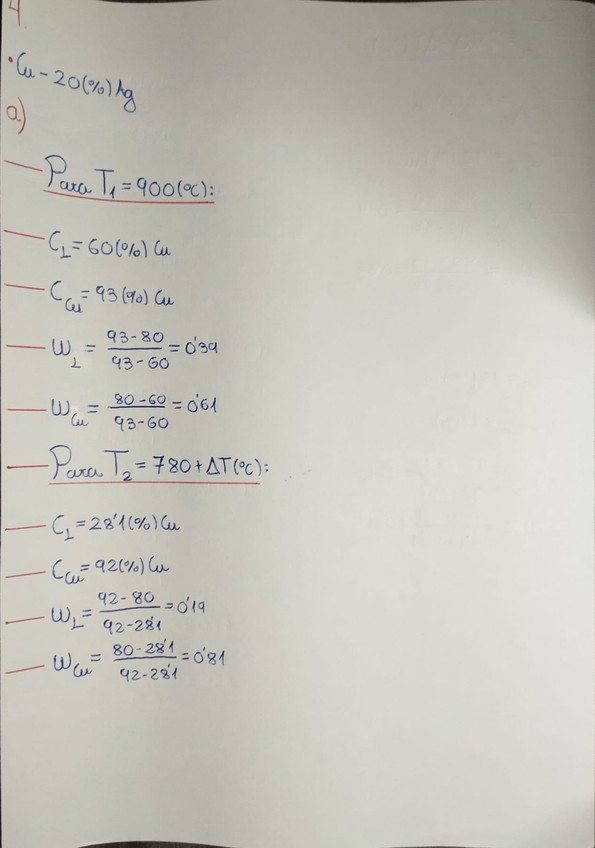 4
• Cu - 20(%) Ag
a)
Para T₁ = 900(ºC):
C_L = 60(%) Cu
C_Cu = 93(%) Cu
W_L = (93-80)/(93-60) = 0'39
W_Cu = (80-60)/(93-60) = 0'61
Para T₂ = 780 + ΔT(ºC):
C_L = 28'1(%) Cu
C_Cu = 92(%) Cu
W_L = (92-80)/(92-28'1) = 0'19
W_Cu = (80-28'1)/(92-28'1) = 0'81